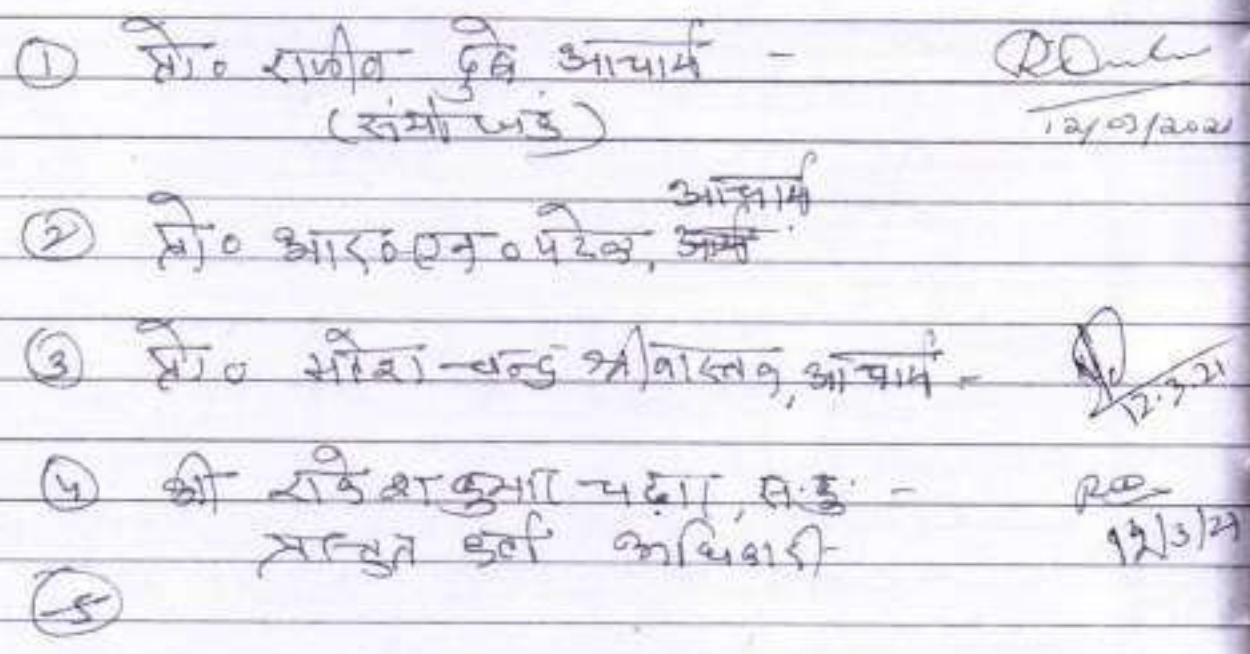 ① प्रो० राजीव दुबे आचार्य -
(संयोजक)
12/03/2021
आचार्य
② प्रो० आर०एन० पटेल,
③ प्रो० भोरेश चन्द्र श्रीवास्तव, आचार्य -
12.3.21
④ श्री राकेश कुमार चढ़ार, स.कु. -
12/3/21
प्रस्तुत कर्ता अधिकारी
⑤